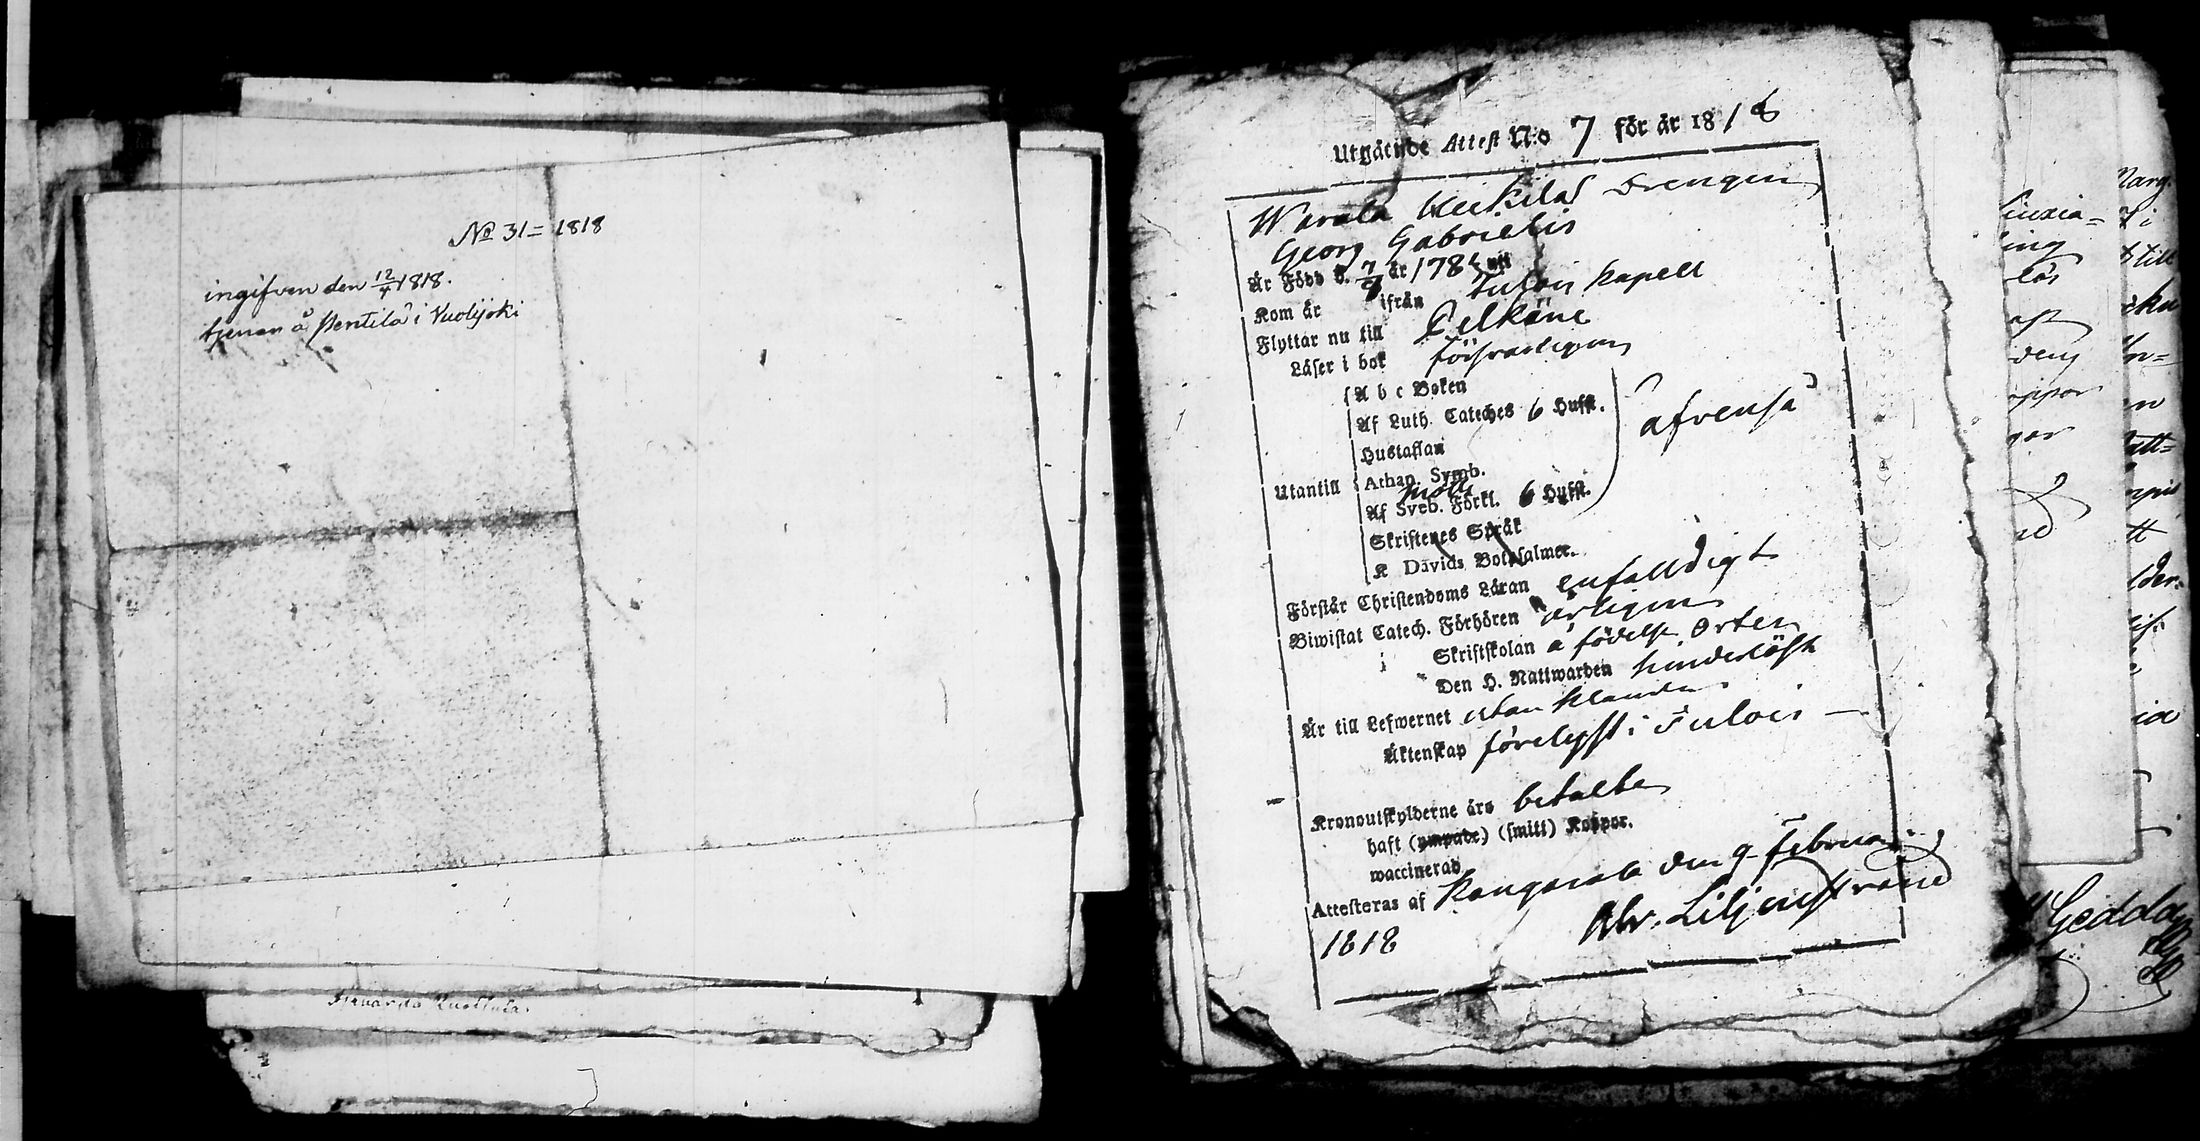 No 31 = 1818
ingifven den 12/4 1818.
tjenar å Pentilä i Vuolijoki
Utgående Attest N:o 7 för år 1818
Warala Heikilä Drengen
Georg Gabrielis
Är Född d. 7/9 år 178 uti
Kom år ifrån Tulois Kapell
Flyttar nu till Pelkäne
Läser i bok försvarligen
A b c Boken
Af Luth. Cateches 6 Hufst.
afvenså
Hustaflan
Utantill Athan. Symb.
Af Sveb. Förkl. 6 Hufst.
Skriftenes Språk
K Davids Botpsalmer.
Förstår Christendoms Läran enfalldigt
Biwistat Catech. Förhören årligen
i Skriftskolan å födelse Orten
Den H. Nattwarden hinderlöst
Är till Lefwernet utan klander
Äktenskap förelyst i Tulois —
Kronoutskylderne äro betalte
haft (ympade) (smitt) Koppor.
waccinerad
Attesteras af Kangasala den 9 Februari
1818 Abr. Liljenstrand
Gedda